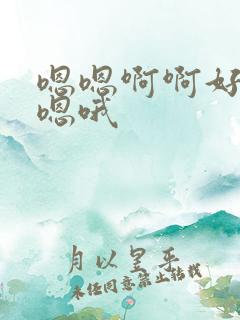 嗯嗯啊啊好
嗯哦
月以皇手
未经同意禁止转载